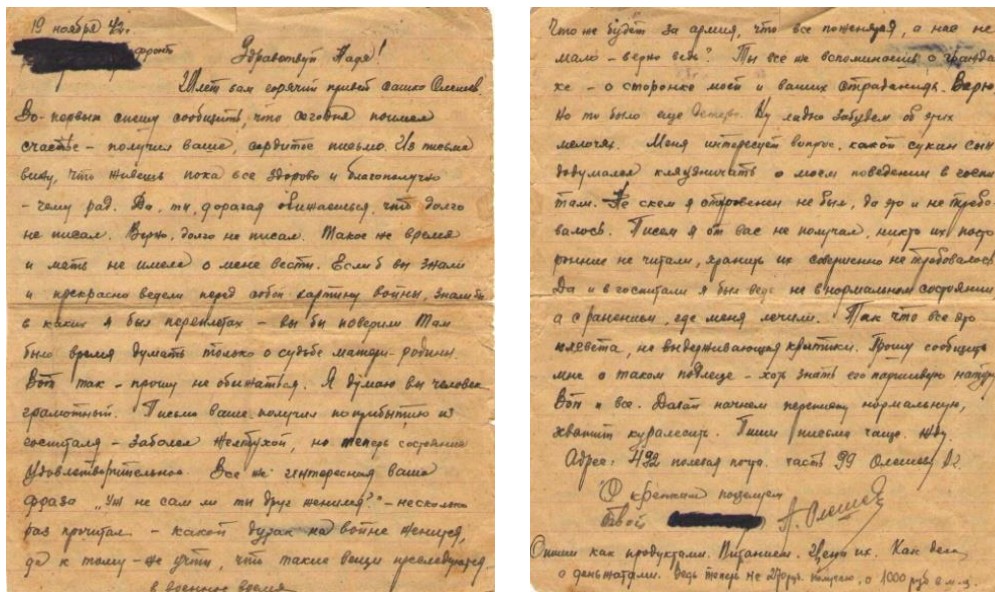 19 ноября 42г.
фронт
Здравствуй Надя!
Шлет вам горячий привет Сашко Олешев
Во-первых спешу сообщить, что сегодня
счастье - получил ваше, сердитое письмо. Из письма
вижу, что живешь пока все здорово и благополучно
- чему рад. Да, ты, дорогая обижаешься, что долго
не писал. Верно, долго не писал. Такое же время
и мать не имела о мене вести. Если б вы знали
и прекрасно ведели перед собой картину войны, знали бы
в каких я был переплетах - вы бы поверили Там
было время думать только о судьбе матери-родины.
Вот так - прошу не обижаться. Я думаю вы человек
грамотный. Письмо ваше получил по прибытию из
госпиталя - заболел желтухой, но теперь состояние
удовлетворительное. Все же интересная ваша
фраза "Уж не сам ли ты друг женился?" - несколько
раз прочитал - какой дурак на войне женится,
да к тому-же учти, что такие вещи преследуются
в военное время
Что же будет за армия, что все поженятся, а нас не
мало - верно ведь? Ты все же вспоминаешь о
- о сторонке моей и ваших страданиях. Верю
Но то было еще Ну ладно забудем об этих
мелочях. Меня интересует вопрос, какой сукин сын
додумался кляузничать о моем поведении в госпи
там. Не скем я откровенен не был, да это и не требо
валось. Писем я от вас не получал, никто их посто
ронние не читали, хранить их совершенно не требовалось
Да и в госпитали я был ведь не в нормальном состоянии
а с ранением, где меня лечили. Так что все это
клевета, не выдерживающая критики. Прошу сообщить
мне о таком подлеце - хоть знать его паршивую натуру
Вот и все. Давай начнем переписку нормальную,
хватит куралесить. Пиши письма чаще. Жду.
Адрес: 492 полевая почта. часть 99 Олешев
С крепким поцелуем
Твой А. Олешев
Опиши как продуктами. Питанием. Цены их. Как дела
о деньжатами. Ведь теперь не получаю, а 1000 руб в м-ц.